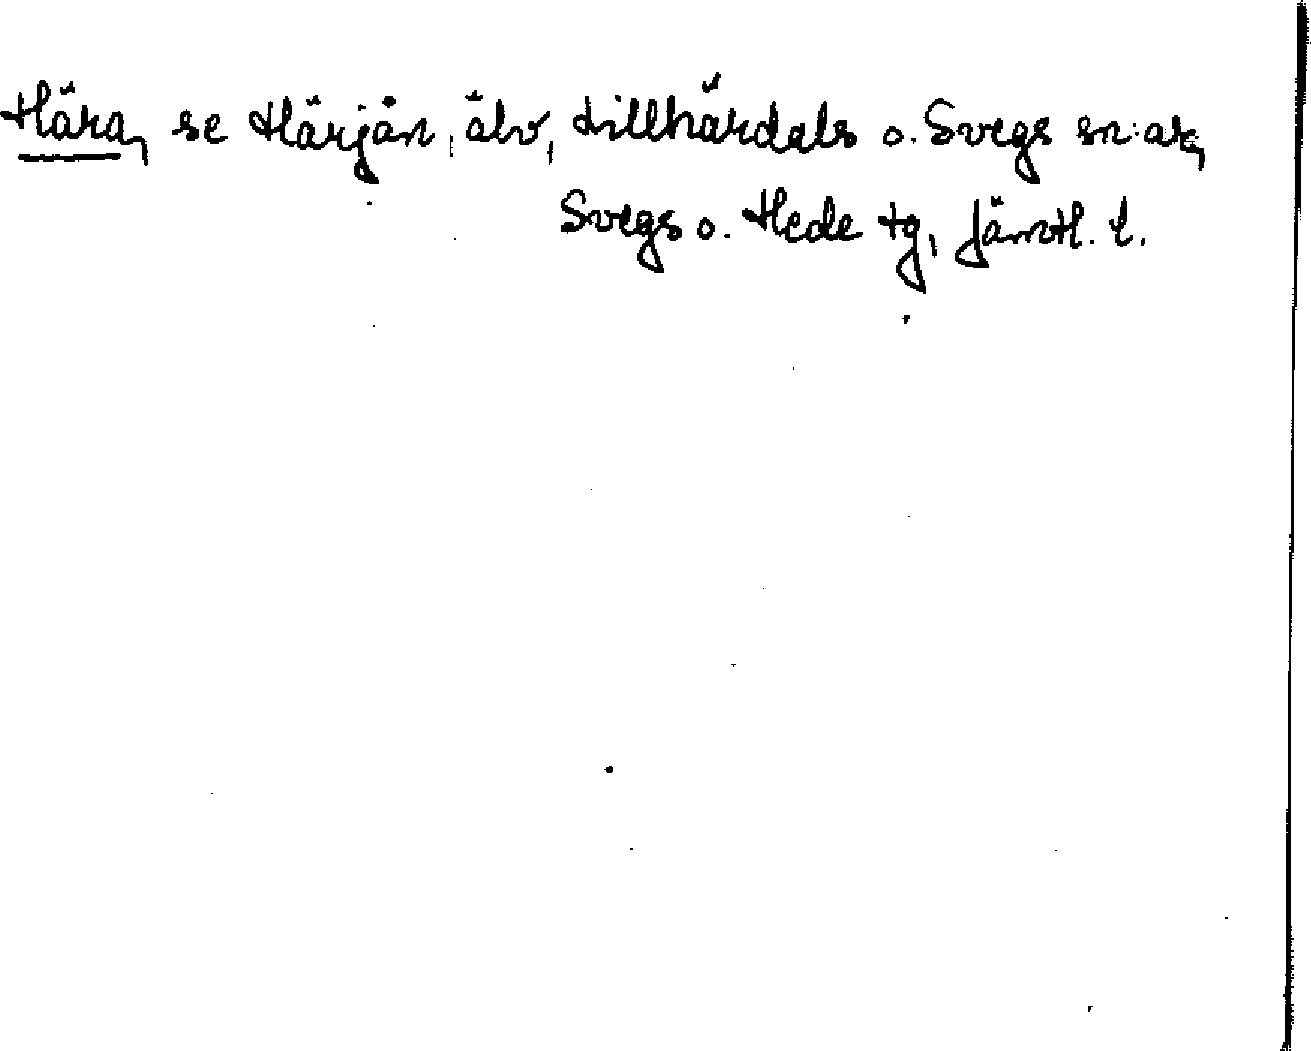 Hära, se Härjån, älv, Lillhärdals o. Svegs sn:ar,
Svegs o. Hede tg, Jämtl. l.